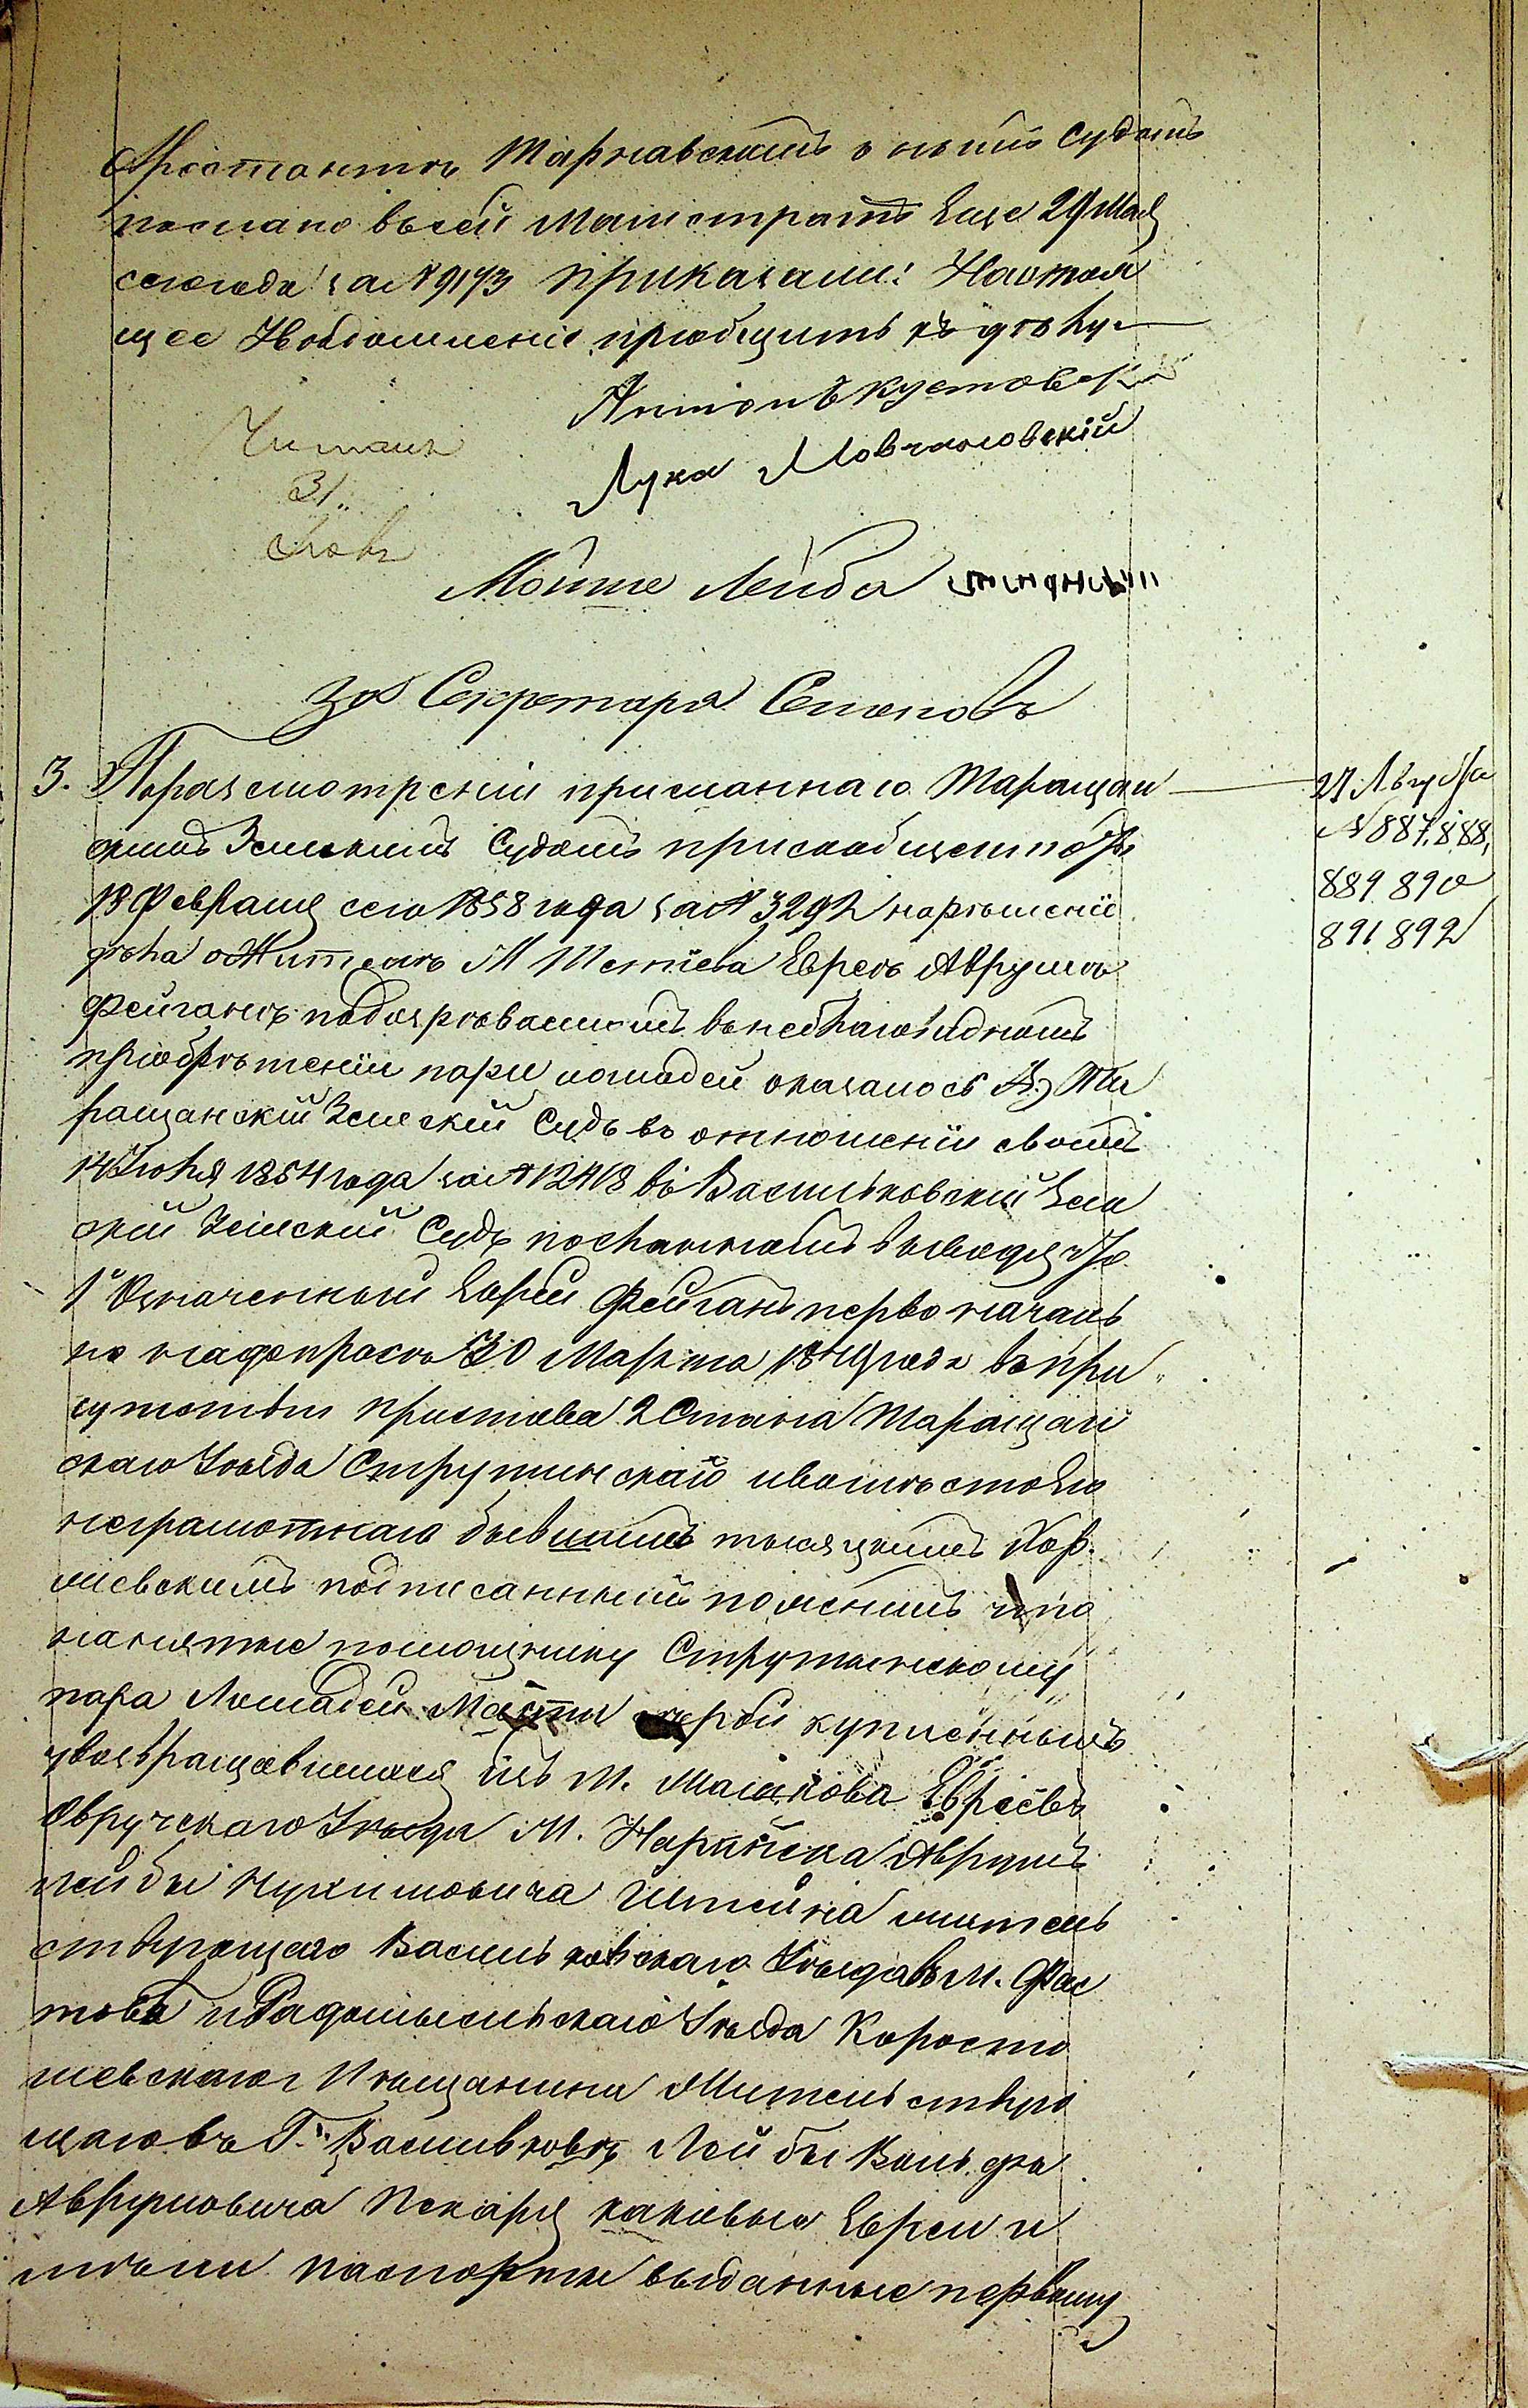 Арестантъ Тарнавскимъ Судомъ
послано въсей Магистратъ Еще 29 Мая
сегогода за № 9173 Приказали: Настоя
щее Уведомленіе приобщить къ делу
Антонъ Кустовск
Лука Мовчановскій
Читалъ
Мойше Лейба
За Секретаря Семеновъ
3. Поразсмотреніи присланнаго Таращан
скимъ Земскимъ Судомъ присообщеніи отъ
18 Февраля сего 1858 года за № 3292 нарѣшеніе
дѣла оЖителѣ М Тетіева Евреѣ Аврумѣ
Фейганѣ подозрѣваемомъ внеблаговидномъ
приобрѣтеніи пары лошадей оказалось А., Та
ращанскій Земскій Судъ въ отношеніи своемъ
14 Іюля 1854 года за № 12418 въ Васильковскій Зем
скій Земскій Судъ посланномъ выводя что
1е Означенный Еврей Фейганъ первоначаль
но надопросѣ 30 Марта года въ при
сутствіи Пристава 2 Стана Таращан
скаго Уѣзда Струтинскаго ивомѣсто Его
неграмотнаго бывшимъ тысяцкимъ
подписанный пояснилъ что
нанятые помощнику Струтынскому
пара Лошадей Масти серой купленныхъ
увозвращавшихся изъ М. Евреевъ
Овручскаго Уезда М. Аврумъ
Лейбы Нухимовича Штейна жител
ствующаго Васильковскаго Уѣзда въ М. Фас
товѣ и Радомысльскаго Уѣзда Корости
шевскаго Мѣщанина Жительствую
щаго въ Г. Васильковѣ Лейбы Вольфа
Аврумовича Пекаря каковыя Евреи и
мѣли паспорты выданные первому
27 Августа
№ 887, 888,
889 890
891 892